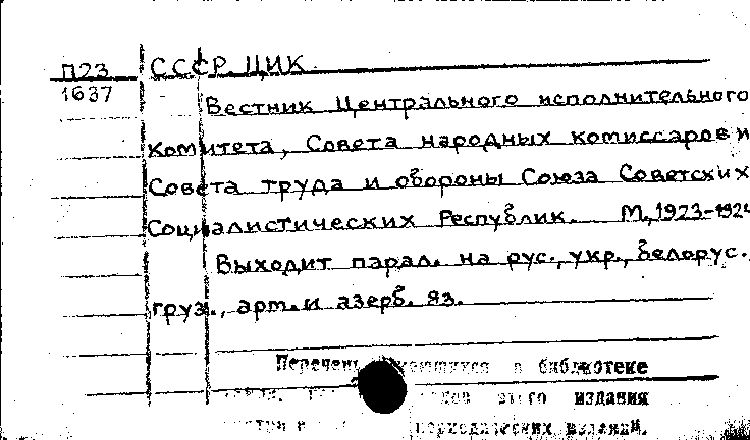 П23 СССР. ЦИК.
1637
Вестник Центрального исполнительного
комитета, Совета народных комиссаров и
Совета труда и обороны Союза Советских
Социалистических Республик. М., 1923-1924
Выходит парал. на рус., укр., белорус.
груз., арм. и азерб. яз.
Перечень имеющихся в библиотеке
этого издания
периодических изданий.